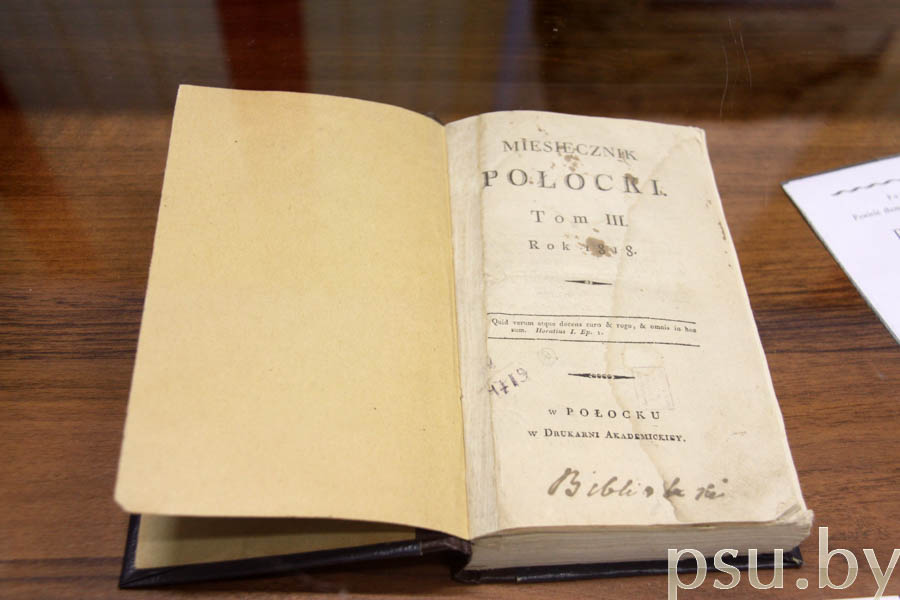 MIESIĘCZNIK
POŁOCKI.
Tom III.
Rok 1818.
Quid verum atque decens curo & rogo, & omnis in hoc
sum. Horatius I. Ep. 1.
4719
w POŁOCKU
w DRUKARNI AKADEMICKIEY.
psu.by